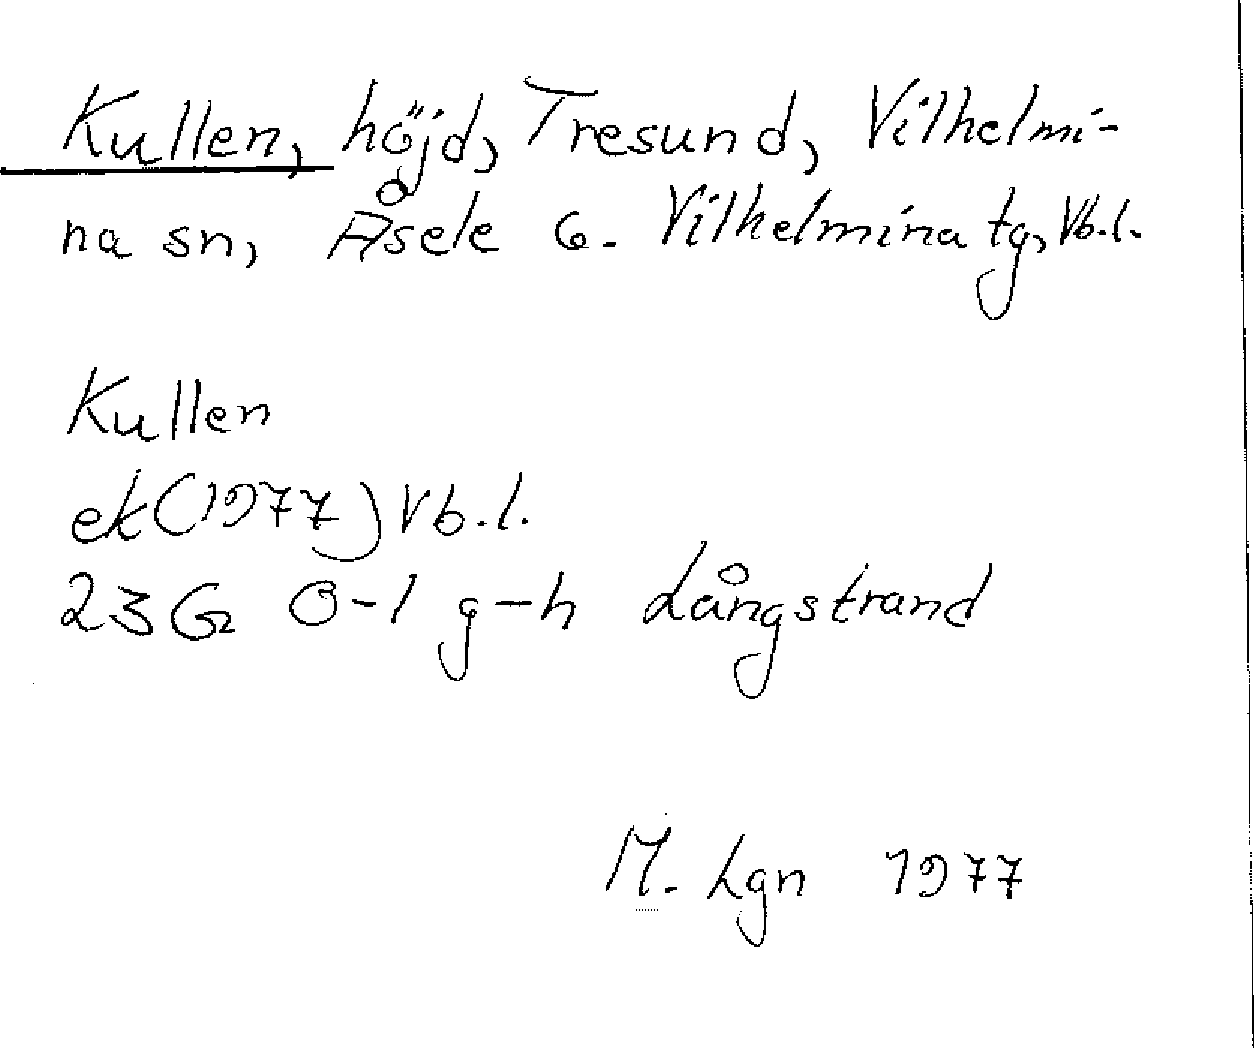 Kullen, höjd, Tresund, Vilhelmi-
na sn, Åsele 6. Vilhelmina tg, Vb.l.
Kullen
ek(1977) Vb.l.
23G 0-1 g-h Långstrand
M. Lgn 1977